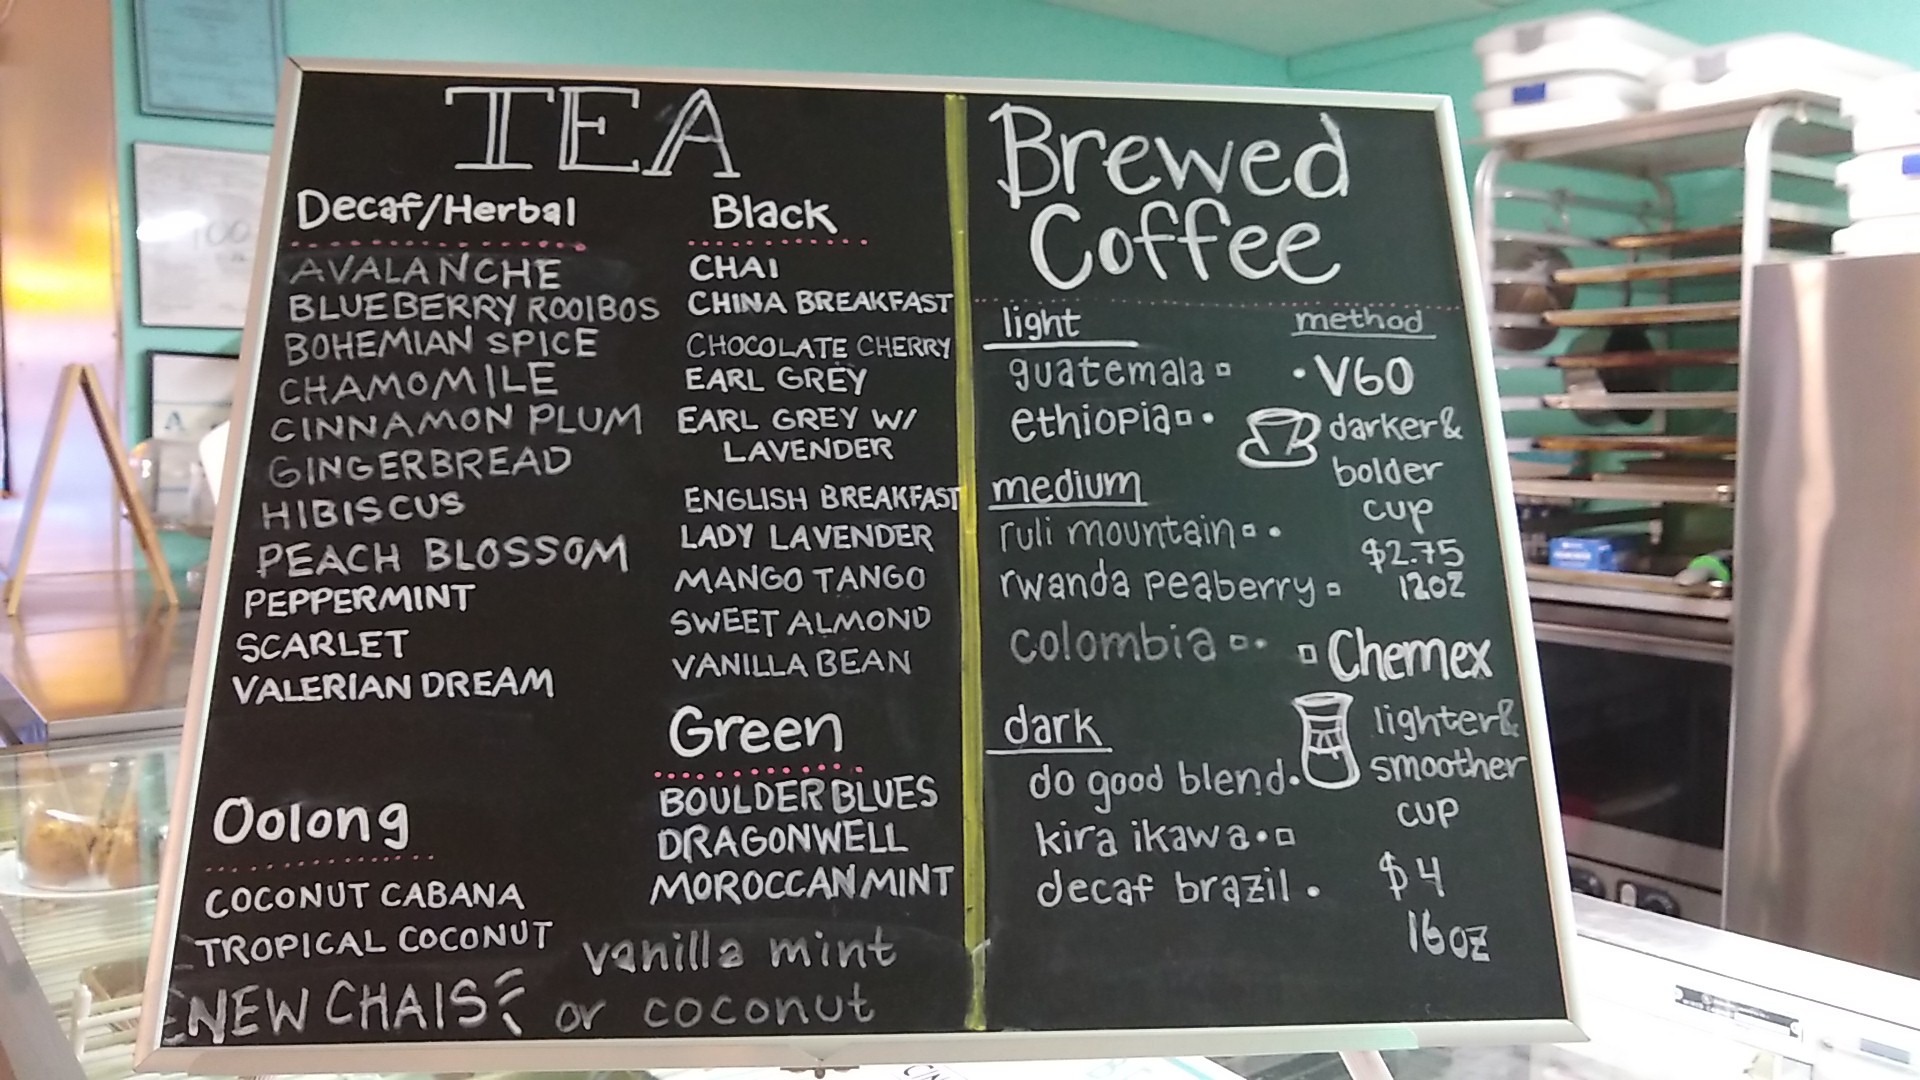 TEA
Decaf/Herbal
AVALANCHE
BLUEBERRY ROOIBOS
BOHEMIAN SPICE
CHAMOMILE
CINNAMON PLUM
GINGERBREAD
HIBISCUS
PEACH BLOSSOM
PEPPERMINT
SCARLET
VALERIAN DREAM
Oolong
COCONUT CABANA
TROPICAL COCONUT
Black
CHAI
CHINA BREAKFAST
CHOCOLATE CHERRY
EARL GREY
EARL GREY W/
LAVENDER
ENGLISH BREAKFAST
LADY LAVENDER
MANGO TANGO
SWEET ALMOND
VANILLA BEAN
Green
BOULDER BLUES
DRAGONWELL
MOROCCAN MINT
NEW CHAIS
vanilla mint
or coconut
Brewed
Coffee
light
guatemala ▫
ethiopia ▫ •
medium
ruli mountain ▫ •
rwanda peaberry ▫
colombia ▫ •
dark
do good blend •
kira ikawa • ▫
decaf brazil •
method
• V60
darker &
bolder
cup
$2.75
12oz
▫ Chemex
lighter &
smoother
cup
$4
16oz